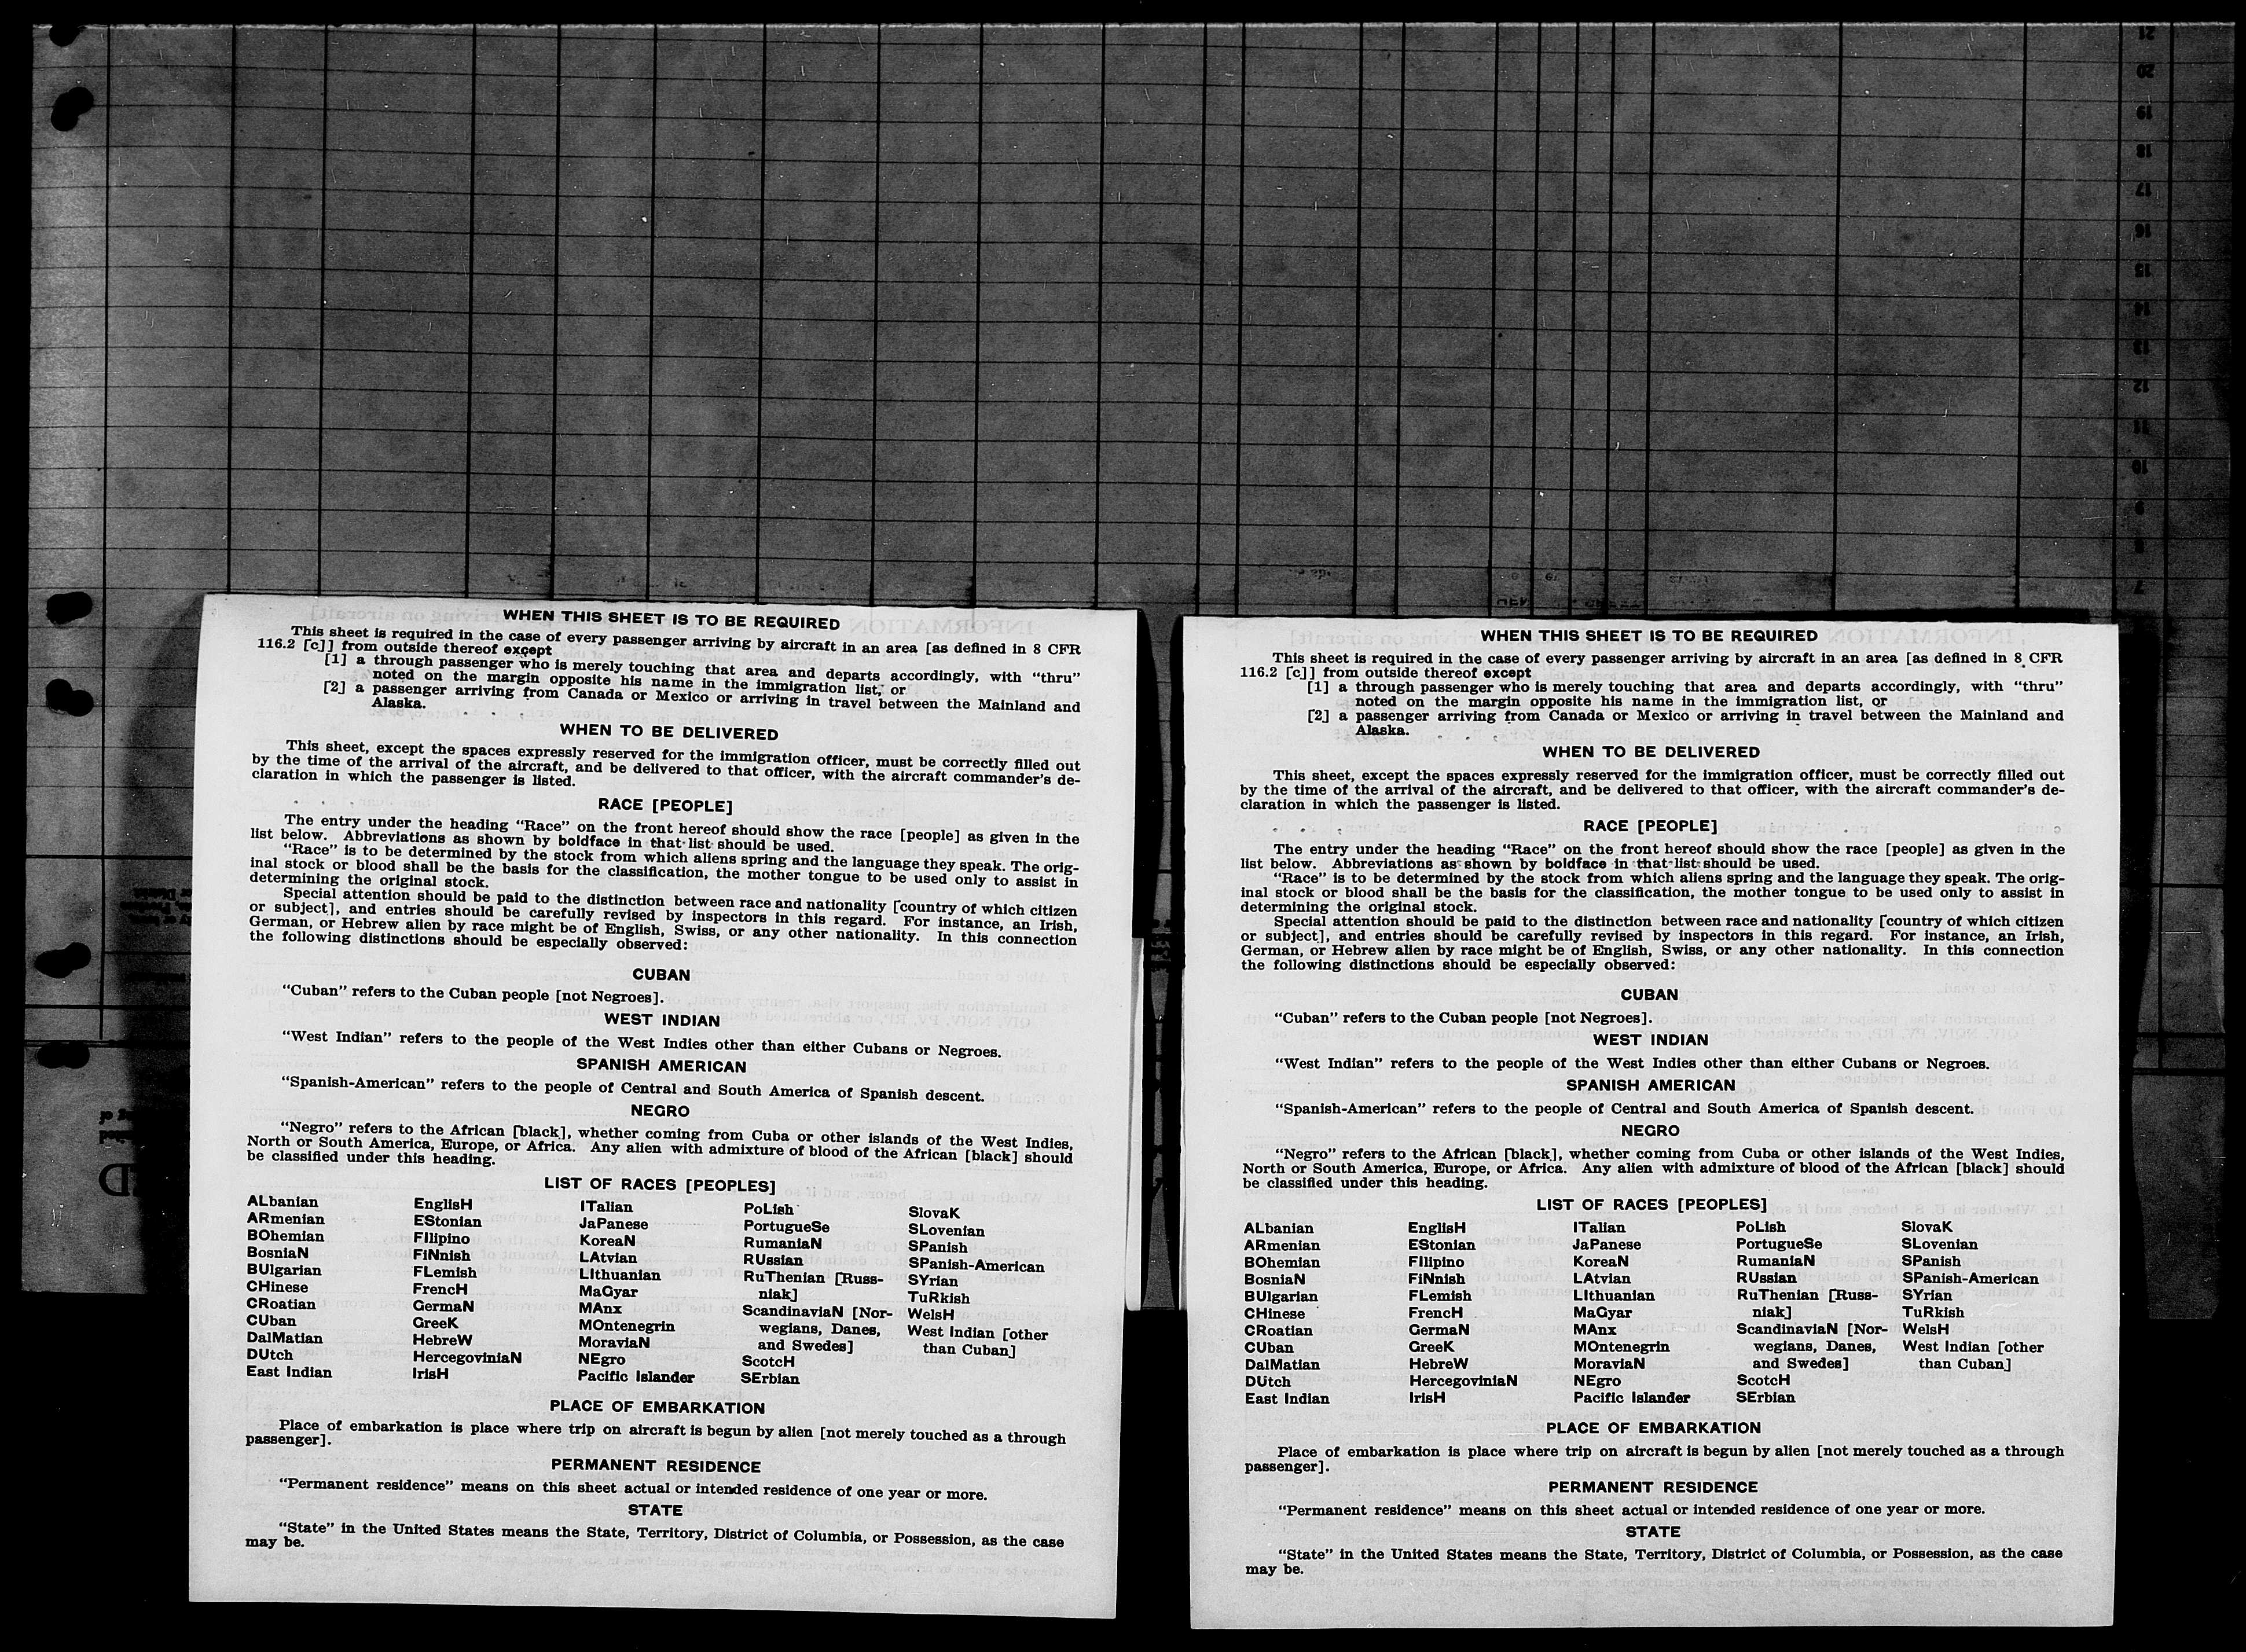 WHEN THIS SHEET IS TO BE REQUIRED
This sheet is required in the case of every passenger arriving by aircraft in an area [as defined in 8 CFR
116.2 [c]] from outside thereof except
[1] a through passenger who is merely touching that area and departs accordingly, with “thru”
noted on the margin opposite his name in the immigration list, or
[2] a passenger arriving from Canada or Mexico or arriving in travel between the Mainland and
Alaska.
WHEN TO BE DELIVERED
This sheet, except the spaces expressly reserved for the immigration officer, must be correctly filled out
by the time of the arrival of the aircraft, and be delivered to that officer, with the aircraft commander's de-
claration in which the passenger is listed.
RACE [PEOPLE]
The entry under the heading “Race” on the front hereof should show the race [people] as given in the
list below. Abbreviations as shown by boldface in that list should be used.
“Race” is to be determined by the stock from which aliens spring and the language they speak. The orig-
inal stock or blood shall be the basis for the classification, the mother tongue to be used only to assist in
determining the original stock.
Special attention should be paid to the distinction between race and nationality [country of which citizen
or subject], and entries should be carefully revised by inspectors in this regard. For instance, an Irish,
German, or Hebrew alien by race might be of English, Swiss, or any other nationality. In this connection
the following distinctions should be especially observed:
CUBAN
“Cuban” refers to the Cuban people [not Negroes].
WEST INDIAN
“West Indian” refers to the people of the West Indies other than either Cubans or Negroes.
SPANISH AMERICAN
“Spanish-American” refers to the people of Central and South America of Spanish descent.
NEGRO
“Negro” refers to the African [black], whether coming from Cuba or other islands of the West Indies,
North or South America, Europe, or Africa. Any alien with admixture of blood of the African [black] should
be classified under this heading.
LIST OF RACES [PEOPLES]
ALbanian
ARmenian
BOhemian
BosniaN
BUlgarian
CHinese
CRoatian
CUban
DalMatian
DUtch
East Indian
EnglisH
EStonian
FIlipino
FiNnish
FLemish
FrencH
GermaN
GreeK
HebreW
HercegoviniaN
IrisH
ITalian
JaPanese
KoreaN
LAtvian
LIthuanian
MaGyar
MAnx
MOntenegrin
MoraviaN
NEgro
Pacific Islander
PoLish
PortugueSe
RumaniaN
RUssian
RuThenian [Russ-
niak]
ScandinaviaN [Nor-
wegians, Danes,
and Swedes]
ScotcH
SErbian
SlovaK
SLovenian
SPanish
SPanish-American
SYrian
TuRkish
WelsH
West Indian [other
than Cuban]
PLACE OF EMBARKATION
Place of embarkation is place where trip on aircraft is begun by alien [not merely touched as a through
passenger].
PERMANENT RESIDENCE
“Permanent residence” means on this sheet actual or intended residence of one year or more.
STATE
“State” in the United States means the State, Territory, District of Columbia, or Possession, as the case
may be.
WHEN THIS SHEET IS TO BE REQUIRED
This sheet is required in the case of every passenger arriving by aircraft in an area [as defined in 8 CFR
116.2 [c]] from outside thereof except
[1] a through passenger who is merely touching that area and departs accordingly, with “thru”
noted on the margin opposite his name in the immigration list, or
[2] a passenger arriving from Canada or Mexico or arriving in travel between the Mainland and
Alaska.
WHEN TO BE DELIVERED
This sheet, except the spaces expressly reserved for the immigration officer, must be correctly filled out
by the time of the arrival of the aircraft, and be delivered to that officer, with the aircraft commander's de-
claration in which the passenger is listed.
RACE [PEOPLE]
The entry under the heading “Race” on the front hereof should show the race [people] as given in the
list below. Abbreviations as shown by boldface in that list should be used.
“Race” is to be determined by the stock from which aliens spring and the language they speak. The orig-
inal stock or blood shall be the basis for the classification, the mother tongue to be used only to assist in
determining the original stock.
Special attention should be paid to the distinction between race and nationality [country of which citizen
or subject], and entries should be carefully revised by inspectors in this regard. For instance, an Irish,
German, or Hebrew alien by race might be of English, Swiss, or any other nationality. In this connection
the following distinctions should be especially observed:
CUBAN
“Cuban” refers to the Cuban people [not Negroes].
WEST INDIAN
“West Indian” refers to the people of the West Indies other than either Cubans or Negroes.
SPANISH AMERICAN
“Spanish-American” refers to the people of Central and South America of Spanish descent.
NEGRO
“Negro” refers to the African [black], whether coming from Cuba or other islands of the West Indies,
North or South America, Europe, or Africa. Any alien with admixture of blood of the African [black] should
be classified under this heading.
LIST OF RACES [PEOPLES]
ALbanian
ARmenian
BOhemian
BosniaN
BUlgarian
CHinese
CRoatian
CUban
DalMatian
DUtch
East Indian
EnglisH
EStonian
FIlipino
FiNnish
FLemish
FrencH
GermaN
GreeK
HebreW
HercegoviniaN
IrisH
ITalian
JaPanese
KoreaN
LAtvian
LIthuanian
MaGyar
MAnx
MOntenegrin
MoraviaN
NEgro
Pacific Islander
PoLish
PortugueSe
RumaniaN
RUssian
RuThenian [Russ-
niak]
ScandinaviaN [Nor-
wegians, Danes,
and Swedes]
ScotcH
SErbian
SlovaK
SLovenian
SPanish
SPanish-American
SYrian
TuRkish
WelsH
West Indian [other
than Cuban]
PLACE OF EMBARKATION
Place of embarkation is place where trip on aircraft is begun by alien [not merely touched as a through
passenger].
PERMANENT RESIDENCE
“Permanent residence” means on this sheet actual or intended residence of one year or more.
STATE
“State” in the United States means the State, Territory, District of Columbia, or Possession, as the case
may be.
21
20
19
18
17
16
15
14
13
12
11
10
9
8
7